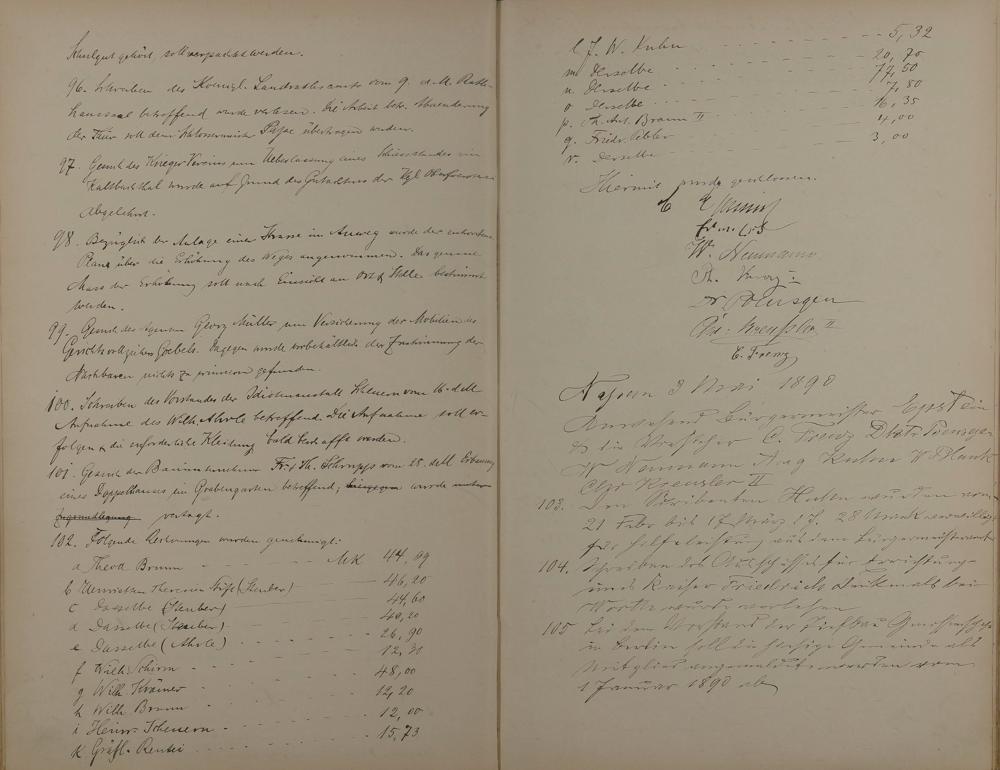 Schulgut gehört, soll verpachtet werden.
96. Schreiben des Koenigl. Landrathsamts vom 9. d. M. Rath-
haussaal betreffend wurde verlesen. Die Arbeit betr. Abaenderung
der Thür soll dem Schlossermeister Pape übertragen werden.
97. Gesuch des Krieger-Vereins um Ueberlassung eines Schiessstandes im
Kaltbachthal wurde auf Grund des Gutachtens der Kgl. Oberförsterei
abgelehnt.
98. Bezüglich der Anlage einer Strasse im Auweg wurde der entworfene
Plan über die Erhöhung des Weges angenommen. Das genaue
Mass der Erhöhung soll nach Einsicht an Ort & Stelle bestimmt
werden.
99. Gesuch des Agenten Georg Müller um Versicherung der Mobilien des
Gerichtsvollziehers Goebels. Dagegen wurde vorbehältlich der Zustimmung der
Nachbaren nichts zu erinnern gefunden.
100. Schreiben des Vorstandes der Idiotenanstalt Scheuern vom 16. d. M.
Aufnahme des Wilh. Ahrle betreffend. Die Aufnahme soll er-
folgen & die erforderliche Kleidung bald beschafft werden.
101. Gesuch der Bauunternehmer Fr. & Th. Schrupp vom 28. d. M. Erbauung
eines Doppelhauses im Grabengarten betreffend, wurde
vertagt.
102. Folgende Rechnungen wurden genehmigt:
a Theod. Bruun - MK 44,99
b Henrietten Theresen Stift (Steuber) 46,20
c Dasselbe (Steuber) 44,60
d Dasselbe (Steuber) 40,20
e Dasselbe (Ahrle) 26,90
f Wilh. Schirm 12,20
g Wilh. Krämer 48,00
h Wilh. Bruun 12,20
i Heinr. Scheuern 12,00
k Gräfl. Rentei 15,73
l J. W. Kuhn 5,32
m Derselbe 20,70
n Derselbe 77,50
o Derselbe 7,80
p. Th. Ant. Braun II 16,35
q. Friedr. 4,00
r. Derselbe 3,00
Hiermit wurde geschlossen.
W. Neumann
C. Frenz
Nassau 3 Mai 1890
Anwesend Bürgermeister
& die Vorsteher C. Frenz
W Neumann Aug Kuhn W
Chr Kreusler II
103. Den Hutten wurden vom
21 Febr bis 17 März l. J. 28 Mark verwilligt
für Hilfeleistung auf dem Bürgermeisteramt
104. Schreiben des Ausschusses für Errichtung
eines Kaiser Friedrich Denkmals bei
Worth wurde verlesen
105 Bei dem Vorstand der Tiefbau Genossenschaft
in Berlin soll die hiesige Gemeinde als
Mitglied angemeldet werden vom
1 Januar 1890 ab